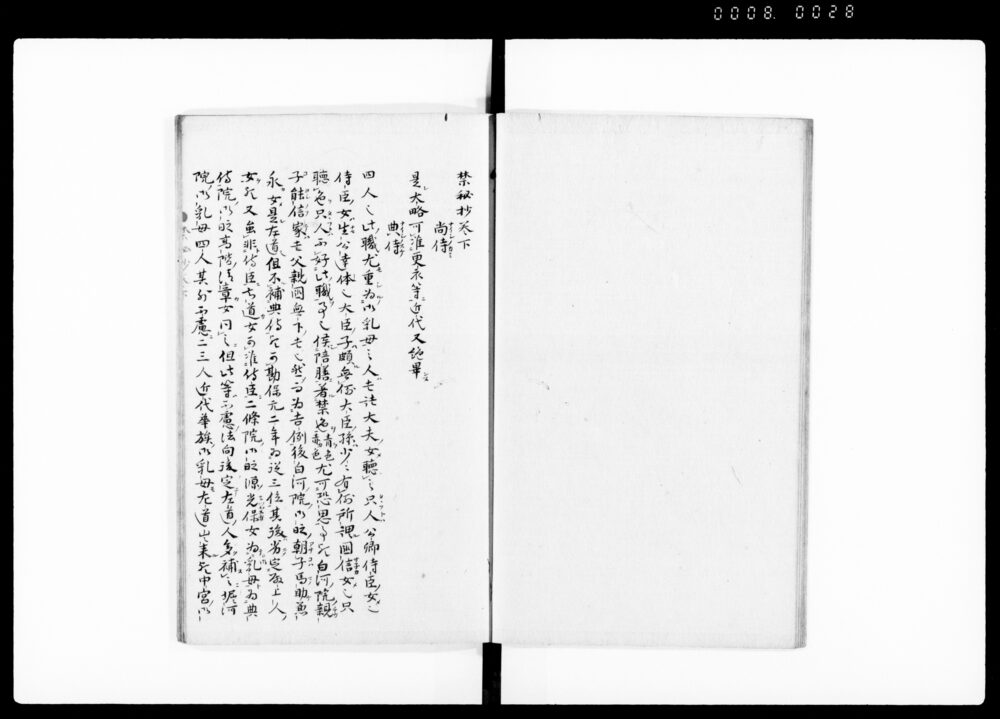 0008. 0028
禁秘抄巻下
尚侍
是大略可准更衣等近代又絶畢
典侍
四人也此職尤重為御乳母之人者諸大夫女聴之只人公卿侍臣女也
侍臣女生公達体也大臣子頗無例大臣孫少々有例所謂国信女也只
聴色只人不好此職事也候陪膳着禁色青色赤色尤可恐思事歟白河院親
子能信家者父親国無下者也然而為吉例後白河院御時朝子馬助兼
永女是左道但不補典侍歟可勘保元二年為従三位其後省定為上人
女歟又雖非侍臣女道女可准侍臣二條院御時源光保女為乳母為典
侍院御時高階清章女同之但此等不慮法向後定左道人多補之堀河
院御乳母四人其外不慮二三人近代華族御乳母左道出来歟中宮御